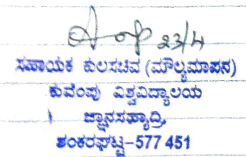 23/4
ಸಹಾಯಕ ಕುಲಸಚಿವ (ಮೌಲ್ಯಮಾಪನ)
ಕುವೆಂಪು ವಿಶ್ವವಿದ್ಯಾಲಯ
ಜ್ಞಾನಸಹ್ಯಾದ್ರಿ,
ಶಂಕರಘಟ್ಟ-577 451